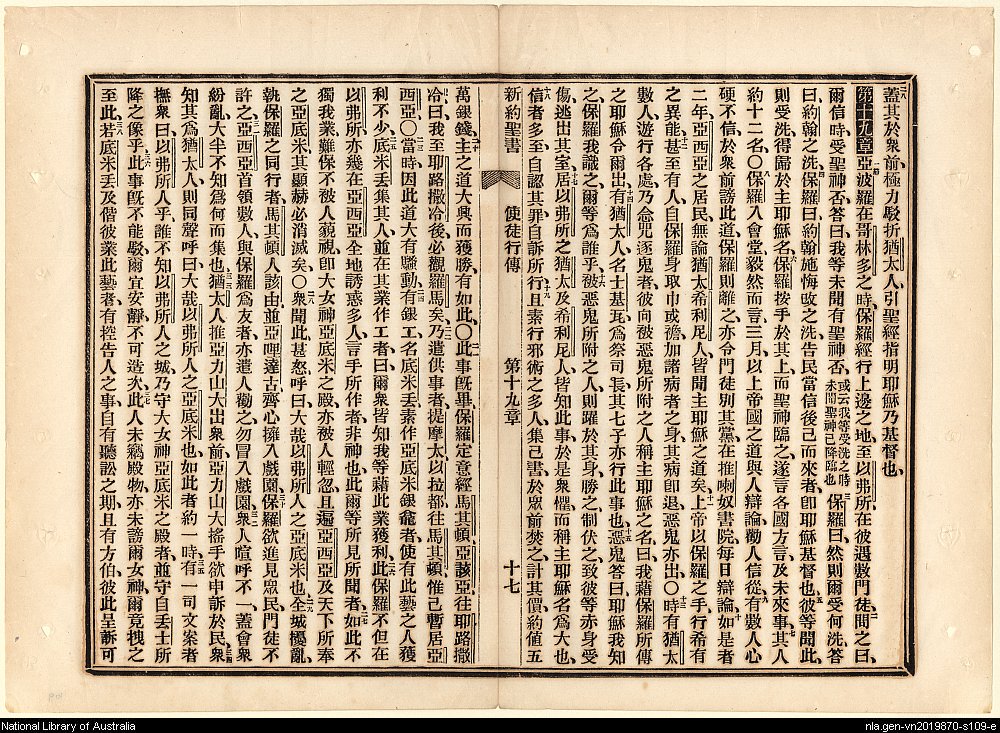 蓋其於衆前極力駁折猶太人引聖經指明耶穌乃基督也
第十九章 亞波羅在哥林多之時保羅經行上邊之地至以弗所在彼遇數門徒問之曰
爾信時受聖神否答曰我等未聞有聖神否 或云我等受洗之時未聞聖神已降臨也 保羅曰然則爾受何洗答
曰約翰之洗保羅曰約翰施悔改之洗告民當信後己而來者卽耶穌基督也彼等聞此
則受洗得歸於主耶穌名保羅按手於其上而聖神臨之遂言各國方言及未來事其人
約十二名〇保羅入會堂毅然而言三月以上帝國之道與人辯論勸人信從有數人心
硬不信於衆前謗此道保羅則離之亦令門徒别其黨在推喇奴書院每日辯論如是者
二年亞西亞之居民無論猶太希利尼人皆聞主耶穌之道矣上帝以保羅之手行希有
之異能甚至有人自保羅身取巾或襜加諸病者之身其病卽退惡鬼亦出〇時有猶太
數人遊行各處乃念咒逐鬼者彼向被惡鬼所附之人稱主耶穌之名曰我藉保羅所傳
之耶穌令爾出有猶太人名士基瓦爲祭司長其七子亦行此事也惡鬼答曰耶穌我知
之保羅我識之爾等爲誰乎被惡鬼所附之人則躍於其身勝之制伏之致彼等赤身受
傷逃出其室居以弗所之猶太及希利尼人皆知此事於是衆懼而稱主耶穌名爲大也
信者多至自認其罪自訴所行且素行邪術之多人集己書於衆前焚之計其價約值五
新約聖書 使徒行傳 第十九章 十七
萬銀錢主之道大興而獲勝有如此〇此事旣畢保羅定意經馬其頓亞該亞往耶路撒
冷曰我至耶路撒冷後必觀羅馬矣乃遣供事者提摩太以拉都往馬其頓惟己暫居亞
西亞〇當時因此道大有騷動有銀工名底米丢素作亞底米銀龕者使有此藝之人獲
利不少底米丢集其人並在其業作工者曰爾衆皆知我等藉此業獲利此保羅不但在
以弗所亦幾在亞西亞全地誘惑多人言手所作者非神也此爾等所見所聞者如此不
獨我業難保不被人藐視卽大女神亞底米之殿亦被人輕忽且遍亞西亞及天下所奉
之亞底米其顯赫必消滅矣〇衆聞此甚怒呼曰大哉以弗所人之亞底米也全城擾亂
執保羅之同行者馬其頓人該由並亞哩達古齊心擁入戲園保羅欲進見衆民門徒不
許之亞西亞首領數人與保羅爲友者亦遣人勸之勿冒入戲園衆人喧呼不一蓋會衆
紛亂大半不知爲何而集也猶太人推亞力山大出衆前亞力山大搖手欲申訴於民衆
知其爲猶太人則同聲呼曰大哉以弗所人之亞底米也如此者約一時有一司文案者
撫衆曰以弗所人乎誰不知以弗所人之城乃守大女神亞底米之殿者並守自丢士所
降之像乎此事旣不能駁爾宜安靜不可造次此人未竊殿物亦未謗爾女神爾竟拽之
至此若底米丢及偕彼業此藝者有控告人之事自有聽訟之期且有方伯彼此呈訴可
National Library of Australia
nla.gen-vn2019870-s109-e